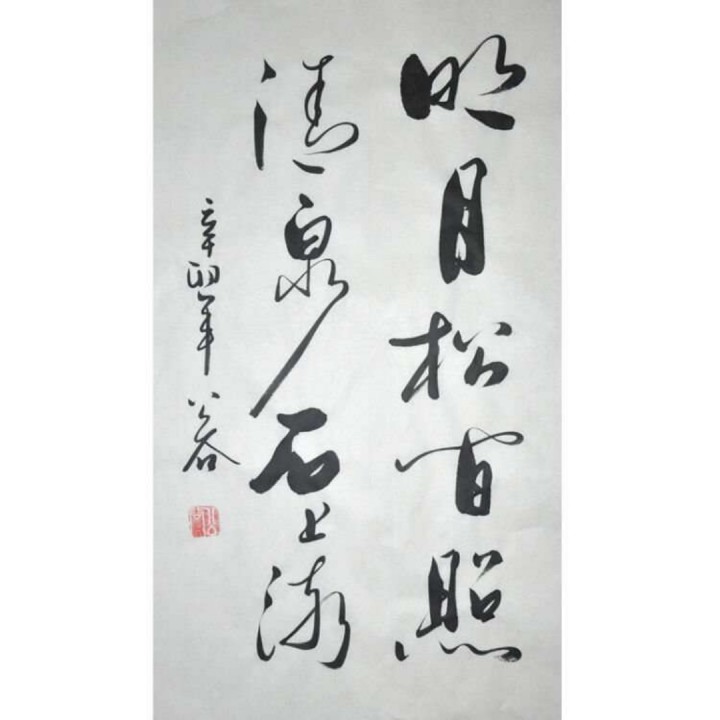 明月松间照
清泉石上流
辛卯年 公谷